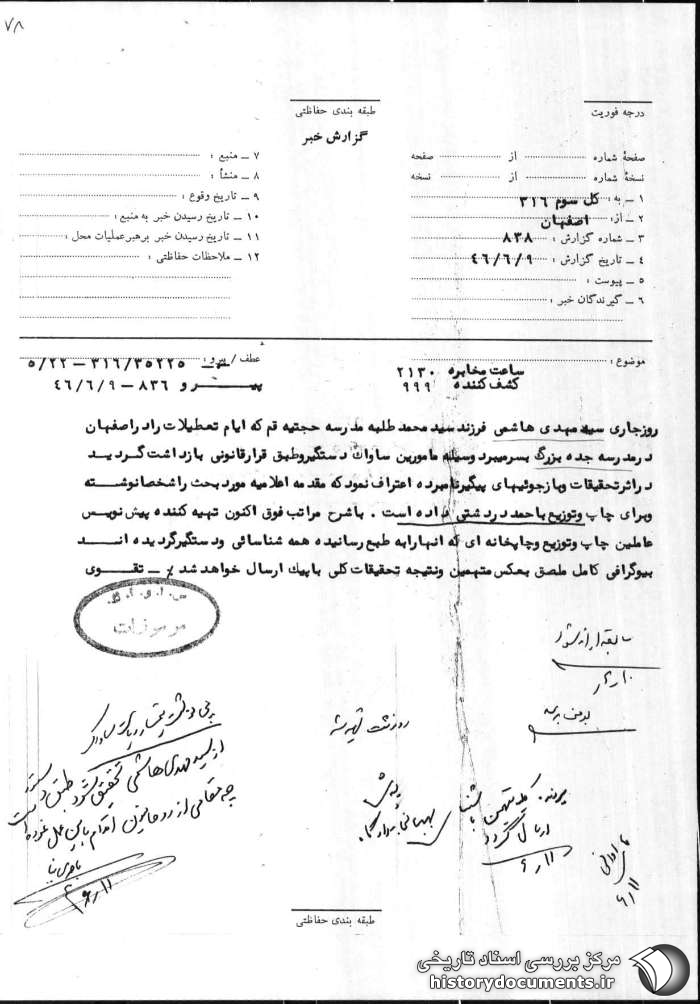 ۷۸
درجه فوریت
طبقه بندی حفاظتی
گزارش خبر
صفحهٔ شماره از صفحه
نسخهٔ شماره از نسخه
۱ ــ به: کل سوم ۳۱۶
۲ ــ از: اصفهان
۳ ــ شماره گزارش: ۸۳۸
۴ ــ تاریخ گزارش: ۴۶/۶/۹
۵ ــ پیوست:
۶ ــ گیرندگان خبر:
۷ ــ منبع:
۸ ــ منشأ:
۹ ــ تاریخ وقوع:
۱۰ ــ تاریخ رسیدن خبر به منبع:
۱۱ ــ تاریخ رسیدن خبر برهبرعملیات محل:
۱۲ ــ ملاحظات حفاظتی:
موضوع:
ساعت مخابره ۲۱۳۰
کشف کننده ۹۹۹
عطف / پیرو: ۳۱۶/۳۵۲۲۵ – ۵/۲۲
پیرو ۸۳۶ – ۴۶/۶/۹
روزجاری سید مهدی هاشمی فرزند سید محمد طلبه مدرسه حجتیه قم که ایام تعطیلات را در اصفهان
در مدرسه جده بزرگ بسر میبرد وسیله مامورین ساواک دستگیر وطبق قرار قانونی بازداشت گردید
در اثر تحقیقات وبازجوئیهای پیگیر نامبرده اعتراف نمود که مقدمه اعلامیه مورد بحث را شخصا نوشته
وبرای چاپ وتوزیع با حمد در دشتی داده است . باشرح مراتب فوق اکنون تهیه کننده پیش نویس
عاملین چاپ وتوزیع وچاپخانه ای که انهارا به طبع رسانیده همه شناسائی ودستگیر گردیده اند
بیوگرافی کامل ملصق بعکس متهمین ونتیجه تحقیقات کلی با پیک ارسال خواهد شد ٪ ــ تقوی
س.ا.و.ا.ک.
مرموزات
سابقه ارائه شود
رونوشت تهیه شد
از سید مهدی هاشمی تحقیق شود طبق دستور
چه مقامی از روحانیون اقدام باین عمل نموده است
۶/۱۱
۶/۱۱
۶/۱۱
طبقه بندی حفاظتی
مرکز بررسی اسناد تاریخی
historydocuments.ir